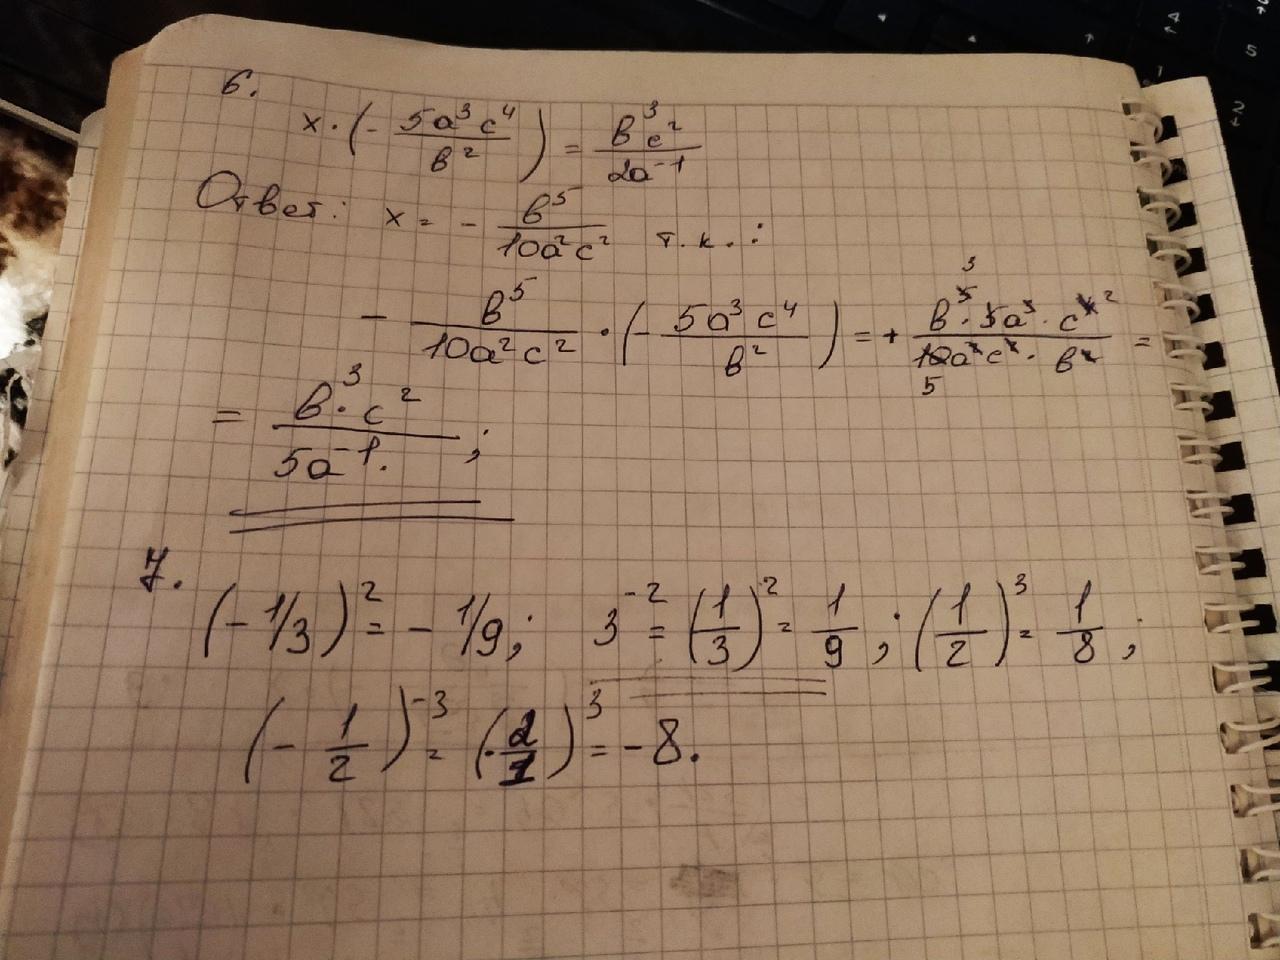 6.
x · (- 5a³c⁴/в²) = в³c²/2a⁻¹
Ответ: x = - в⁵/10a²c² т.к.:
- в⁵/10a²c² · (- 5a³c⁴/в²) = + в⁵ · 5a³ · c⁴/10a²c² · в² = 3 2 5
= в³ · c²/5a⁻¹. ;
7.
(- 1/3)² = - 1/9; 3⁻² = (1/3)² = 1/9; (1/2)³ = 1/8;
(- 1/2)⁻³ = (- 2/1)³ = - 8.